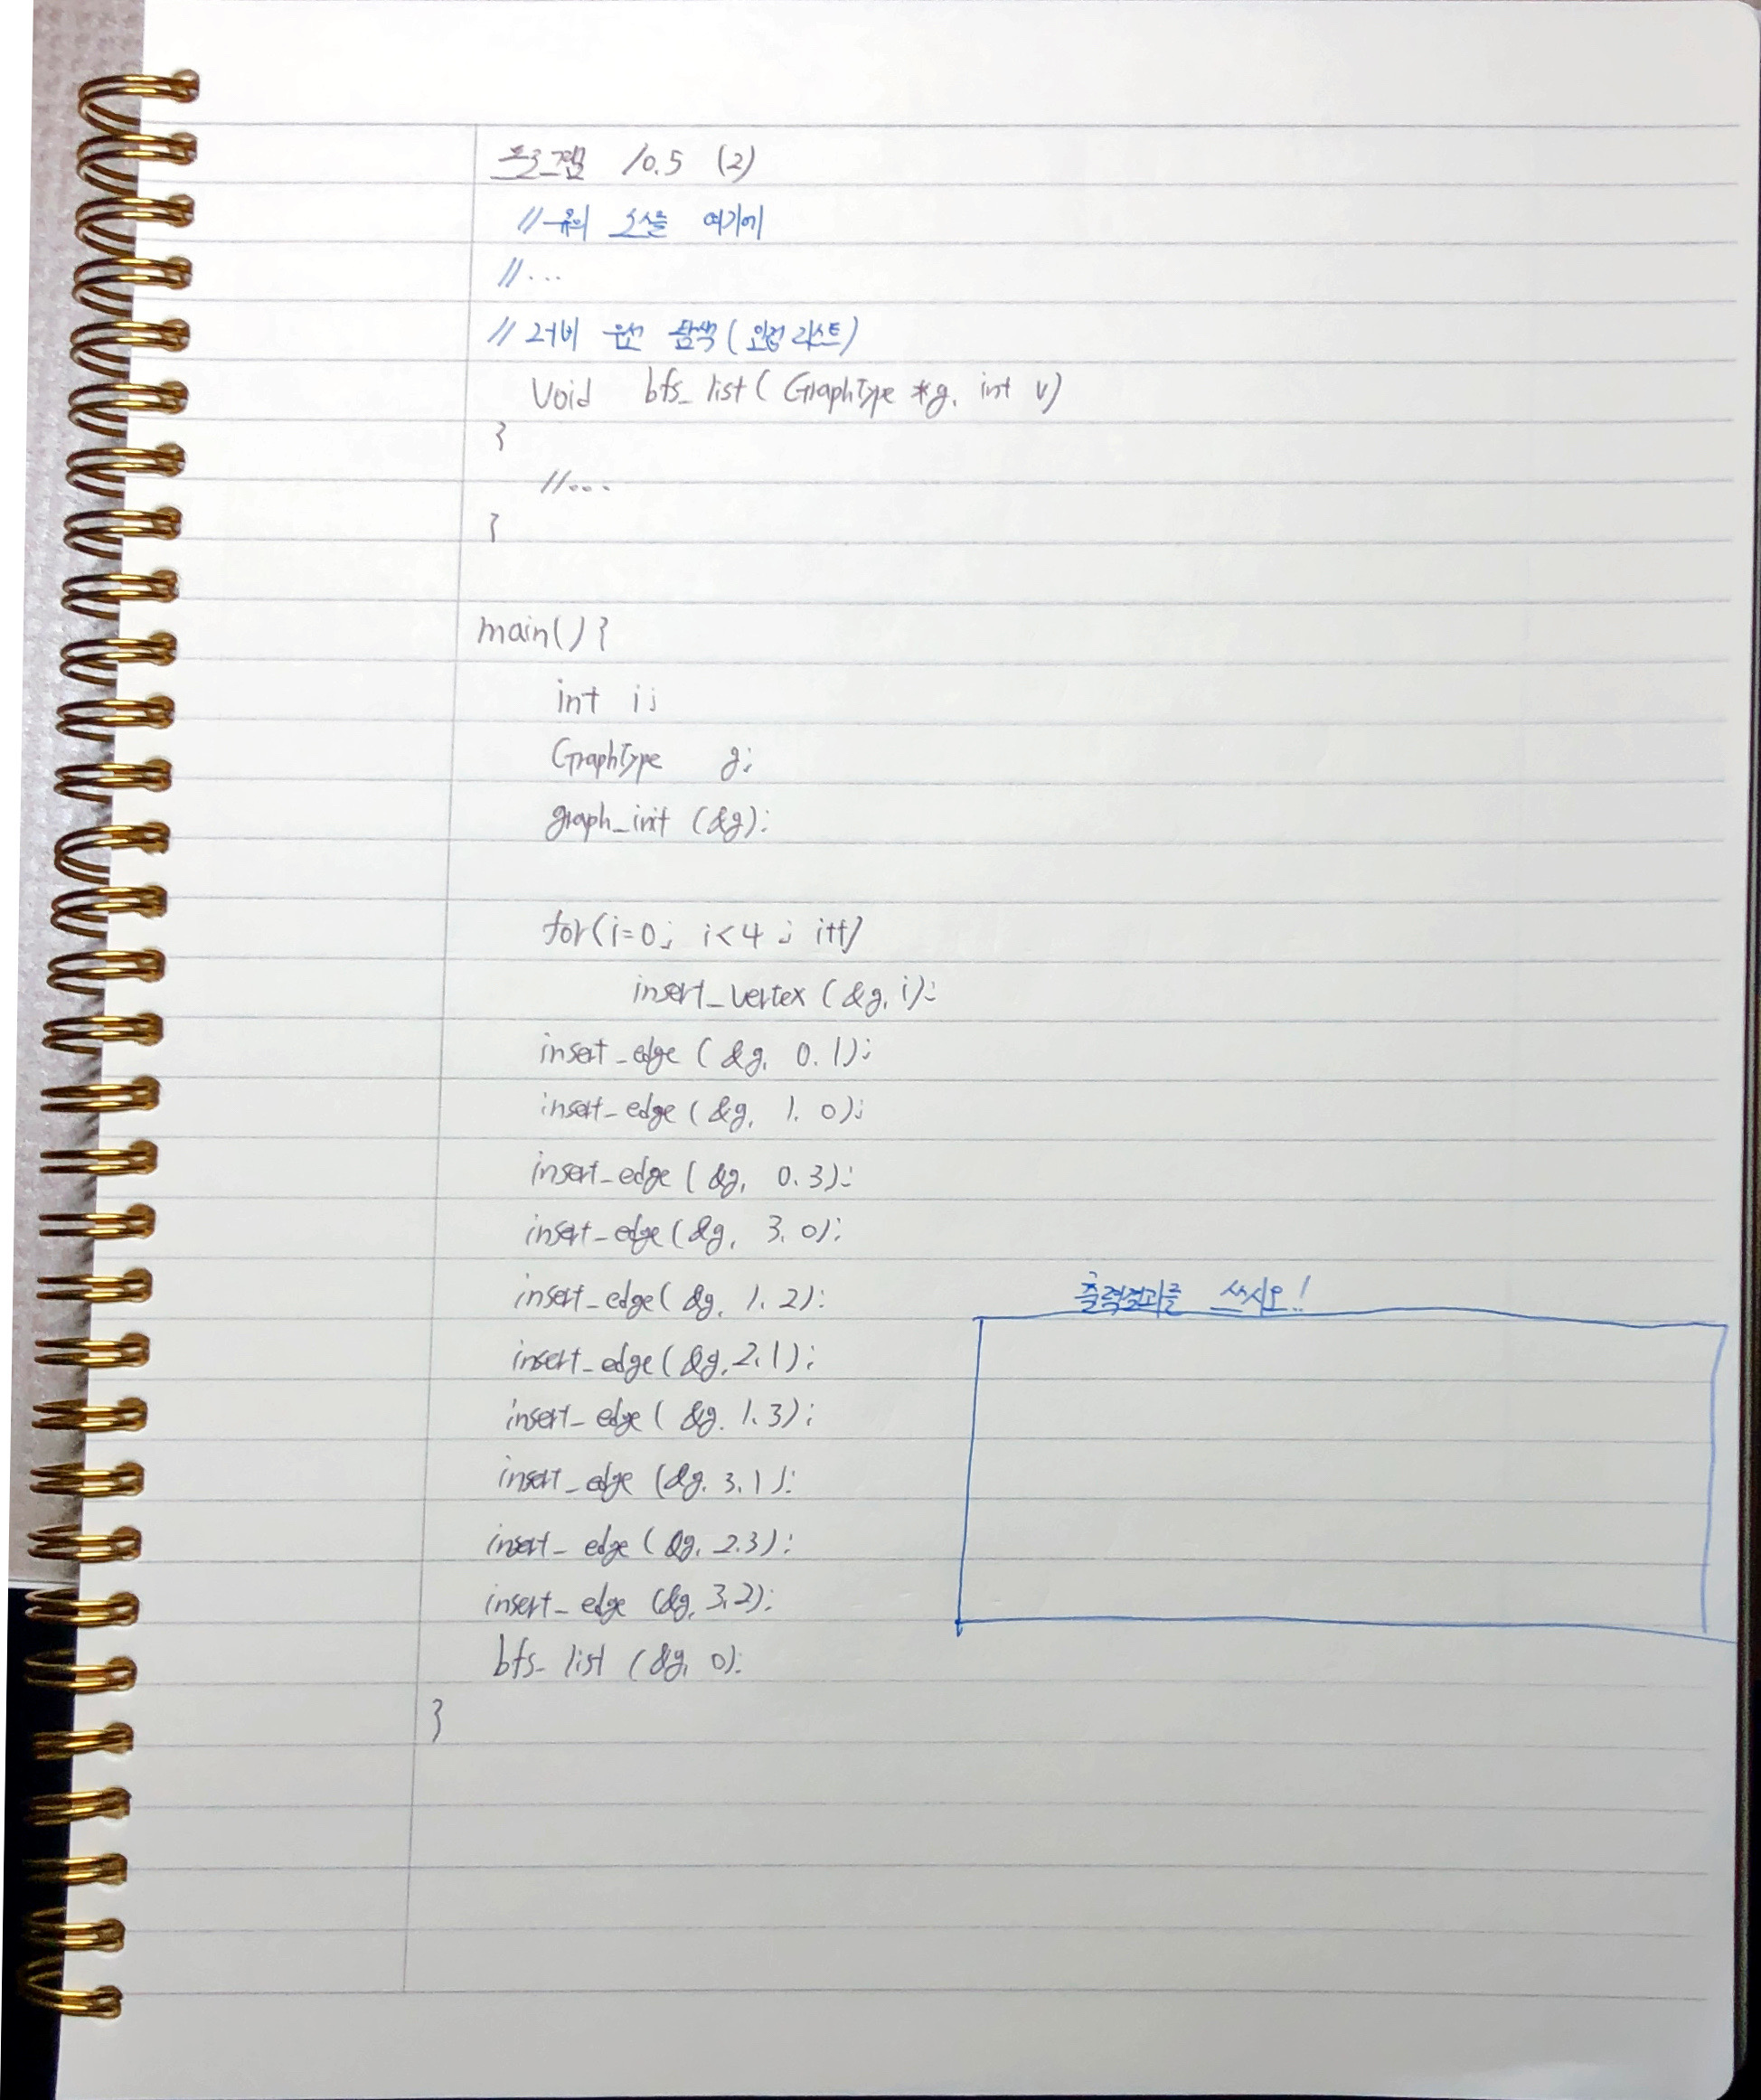 프로그램 10.5 (2)
// 큐의 소스를 여기에
//...
// 너비 우선 탐색 (인접 리스트)
Void bfs_list( GraphType *g, int v)
}
//...
}
main() {
int i;
GraphType g;
graph_init (&g);
for(i=0; i<4; i++)
insert_vertex (&g, i);
insert_edge ( &g, 0. 1);
insert_edge ( &g, 1. 0);
insert_edge ( &g, 0. 3);
insert_edge( &g, 3, 0);
insert_edge( &g, 1. 2);
출력결과를 쓰시오!
insert_edge( &g, 2, 1);
insert_edge( &g. 1. 3);
insert_edge (&g. 3, 1);
insert_edge ( &g, 2.3);
insert_edge (&g, 3,2);
bfs_list (&g, 0);
}